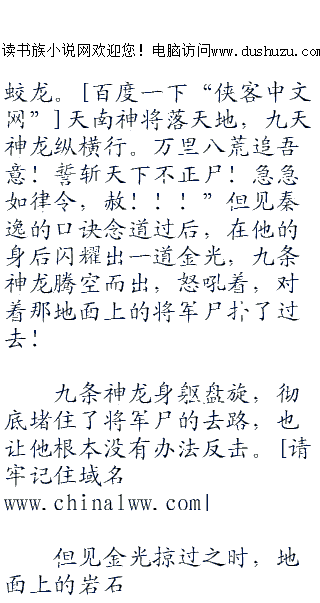 读书族小说网欢迎您！电脑访问www.dushuzu.com
蛟龙。[百度一下“侠客中文
网”]天南神将落天地，九天
神龙纵横行。万里八荒追吾
意！誓斩天下不正尸！急急
如律令，赦！！！”但见秦
逸的口诀念道过后，在他的
身后闪耀出一道金光，九条
神龙腾空而出，怒吼着，对
着那地面上的将军尸扑了过
去！
九条神龙身躯盘旋，彻
底堵住了将军尸的去路，也
让他根本没有办法反击。[请
牢记住域名
www.china1ww.com|
但见金光掠过之时，地
面上的岩石